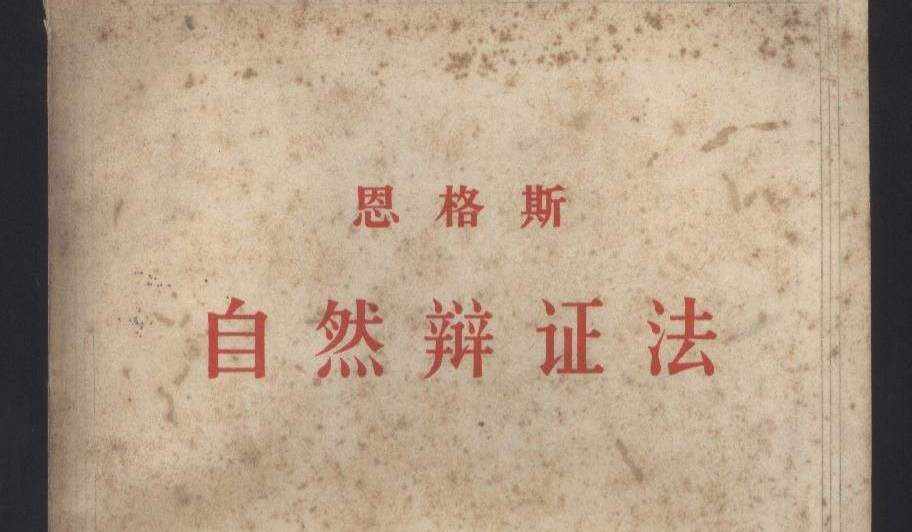 恩格斯
自然辩证法